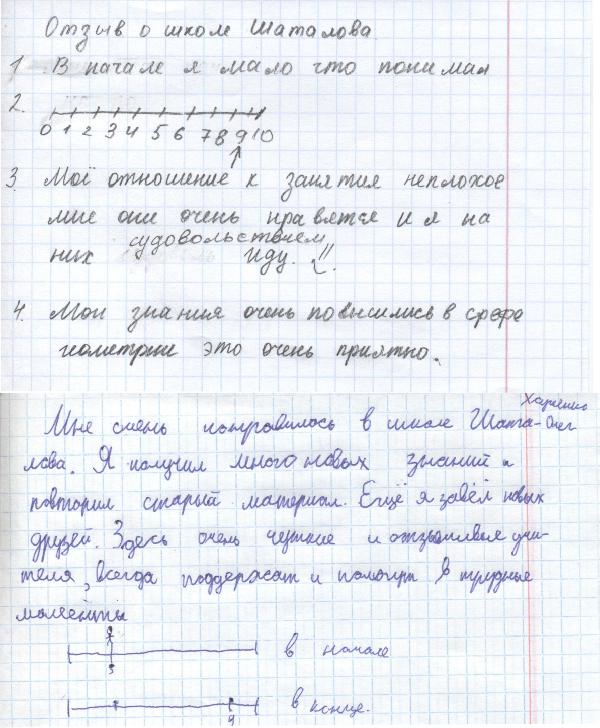 Отзыв о школе Шаталова.
1. В начале я мало что понимал
2.
0 1 2 3 4 5 6 7 8 9 10
3. Моё отношение к занятия неплохое
мне они очень нравятся и я на
них судовольствием иду. !!
4. Мои знания очень повысились в срефе
геометрии это очень приятно.
Харченко
Мне очень понравилось в школе Шата- Олег
лова. Я получил много новых знаний и
повторил старый материал. Ещё я завёл новых
друзей. Здесь очень чуткие и отзывчивые учи-
теля, всегда поддержат и помогут в трудные
моменты
в начале
3
в конце.
9